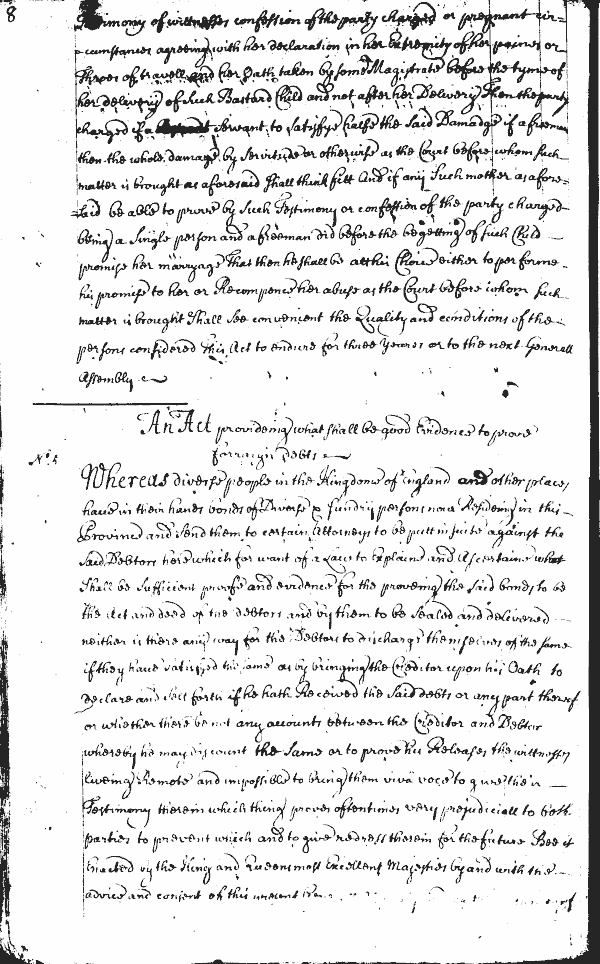 8
Testimony of wittnesses confession of the party charged or pregnant cir=
=cumstances agreeing with her declaration in her Extremity of her paines or
Throes of travell and her Oath taken by some Magistrate before the tyme of
her delivery of such Bastard Child and not after her Delivery Then the party
charged if a Servant to satisfye halfe the said Damadge if a freeman
then the whole damage by Servitude or otherwise as the Court before whom such
matter is brought as aforesaid shall think fitt And if any such mother as afore=
=said be able to prove by such Testimony or confession of the party charged
being a single person and a freeman did before the begetting of such Child
promise her marryage That then he shall be att his Choice either to performe
his promise to her or Recompence her abuse as the Court before whom such
matter is brought Shall see convenient the Quality and conditions of the
persons considered this Act to endure for three Yeares or to the next Generall
Assembly
An Act provideing what shall be good Evidence to prove
forraign Debts
No 5
Whereas diverse people in the Kingdome of England and other places
have in their hands bonds of Diverse & sundry persons now Resideing in this
Province and send them to certain Attorneys to be putt in suite against the
said Debtors here which for want of a Law to Explaine and Ascertaine what
shall be sufficient proofe and evidence for the proveing the said bonds to be
the Act and deed of the debtors and by them to be sealed and delivered
neither is there any way for the Debtors to discharge themselves of the same
if they have satisfyed the same as by bringing the Creditor upon his Oath to
Declare and sett forth if he hath Received the said debts or any part thereof
or whether there be not any accounts between the Creditor and Debtor
whereby he may discount the same or to prove his Releases the wittnesses
liveing Remote and impossible to bring them viva voce to give their
Testimony therein which thing proves oftentimes very prejudiciall to both
parties to prevent which and to give redress therein for the future Bee it
Enacted by the King and Queens most Excellent Majesties by and with the
advice and consent of this present of